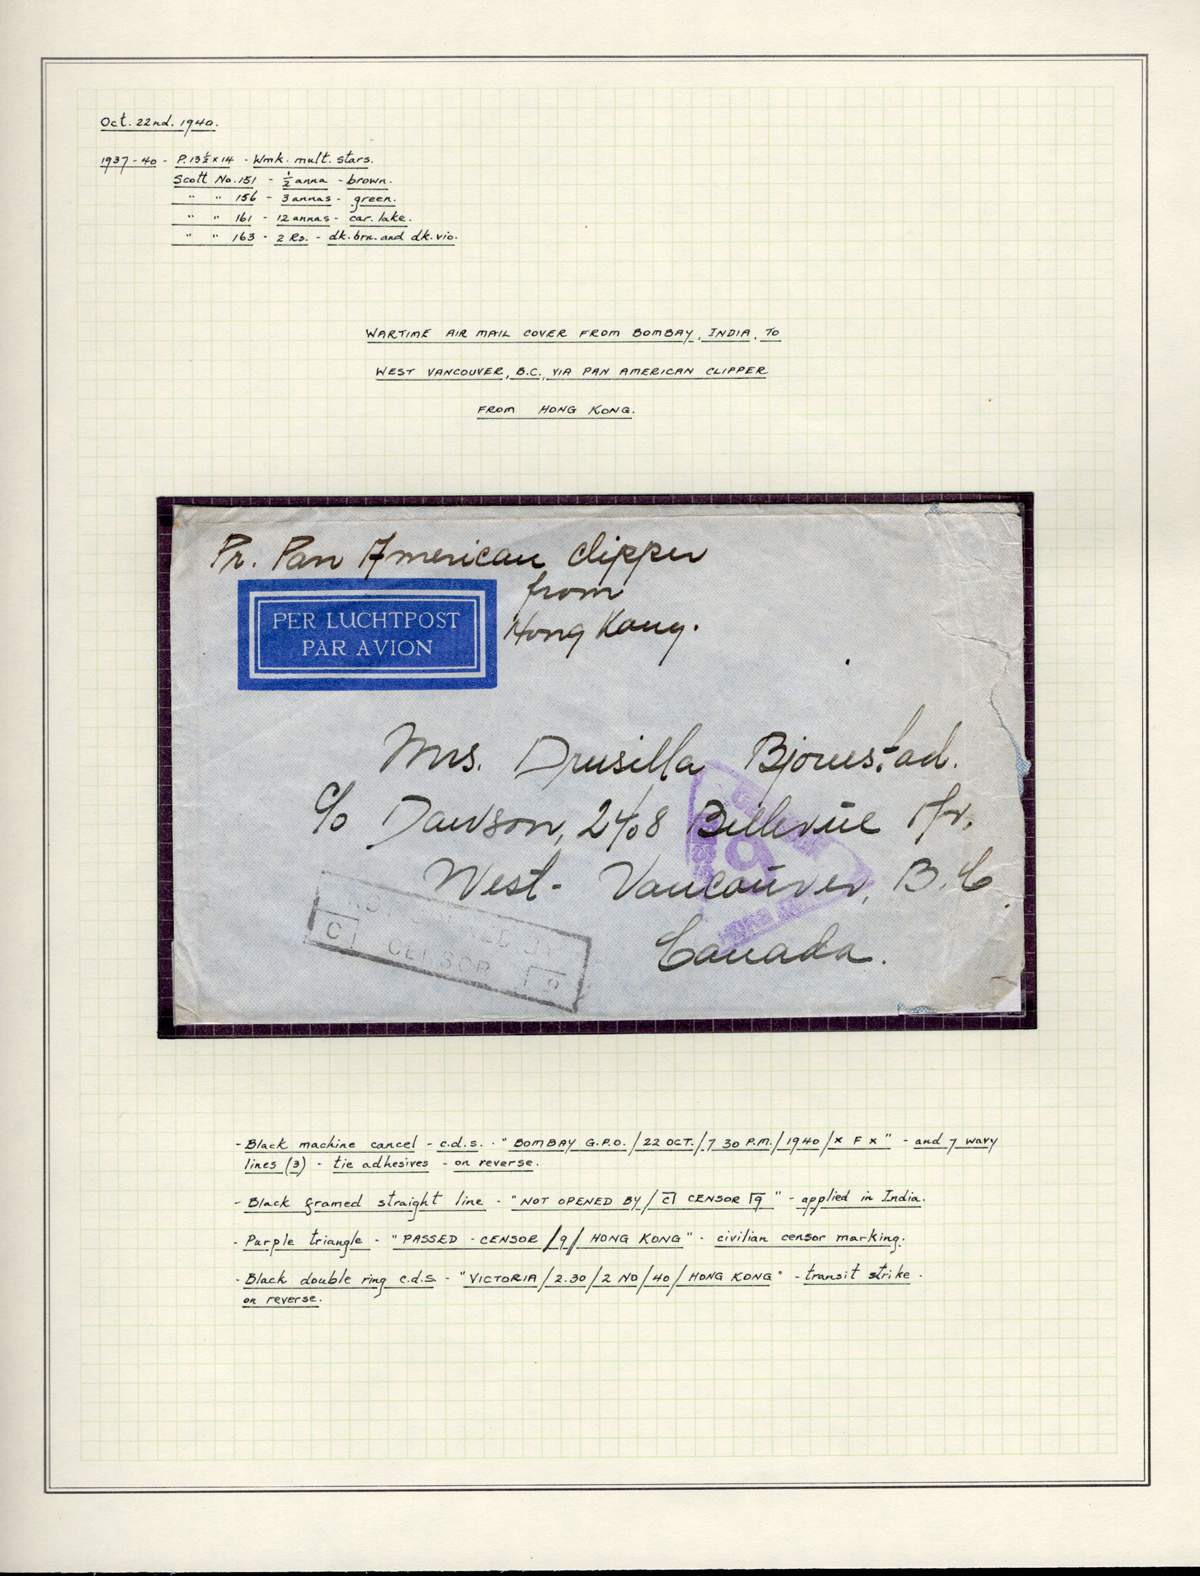 Oct. 22nd. 1940.
1937-40 - P. 13½ x 14 - Wmk. mult. stars.
Scott No. 151 - ½ anna - brown.
" " 156 - 3 annas - green.
" " 161 - 12 annas - car. lake.
" " 163 - 2 Rs. - dk. brn. and dk. vio.
WARTIME AIR MAIL COVER FROM BOMBAY, INDIA, TO
WEST VANCOUVER, B.C., VIA PAN AMERICAN CLIPPER
FROM HONG KONG.
Pr. Pan American Clipper
from
Hong Kong.
PER LUCHTPOST
PAR AVION
Mrs. Drusilla Bjornstad.
c/o Dawson, 2408 Bellevue Av.
West Vancouver, B.C
Canada.
CENSOR
9
HONG KONG
NOT OPENED BY
C CENSOR 9
- Black machine cancel - c.d.s. - "BOMBAY G.P.O. / 22 OCT. / 7 30 P.M. / 1940 / x F x" - and 7 wavy
lines (3) - tie adhesives - on reverse.
- Black framed straight line - "NOT OPENED BY / C CENSOR 9" - applied in India.
- Purple triangle - "PASSED - CENSOR / 9 / HONG KONG" - civilian censor marking.
- Black double ring c.d.s - "VICTORIA / 2.30 / 2 NO / 40 / HONG KONG" - transit strike -
on reverse.